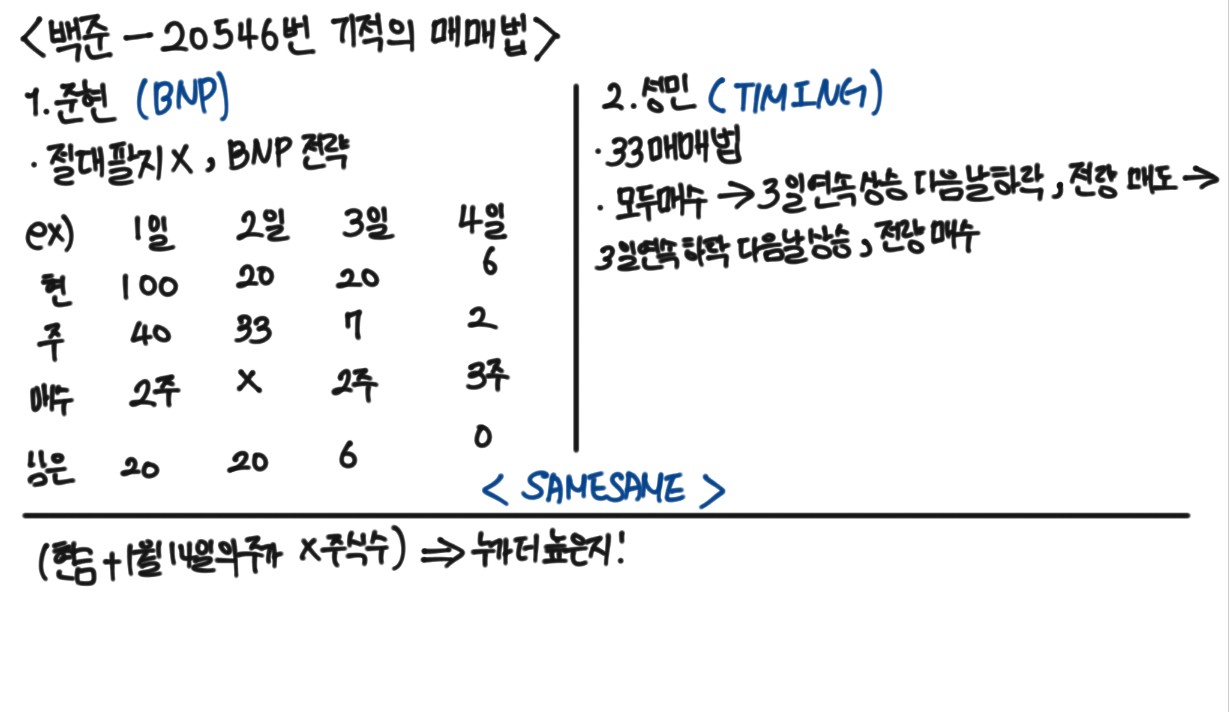 <백준 - 20546번 기적의 매매법>
1. 준현 (BNP)
· 절대팔지 X, BNP 전략
ex) 1일 2일 3일 4일
현 100 20 20 6
주 40 33 7 2
매수 2주 X 2주 3주
남은 20 20 6 0
2. 성민 (TIMING)
· 33매매법
· 모두매수 → 3일연속상승 다음날하락, 전량 매도 →
3일연속하락 다음날상승, 전량매수
< SAMESAME >
(현금 + 1월 14일의주가 X 주식수) ⇒ 누가더높은지!